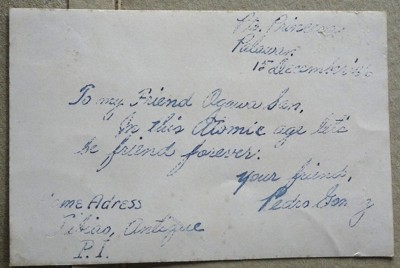 Pto. Princesa
Palawan
15 December
To my Friend Ogawa San,
In this Atomic age let's
be friend forever.
Your friend,
Pedro
me Adress
Tibiao, Antique
P.I.